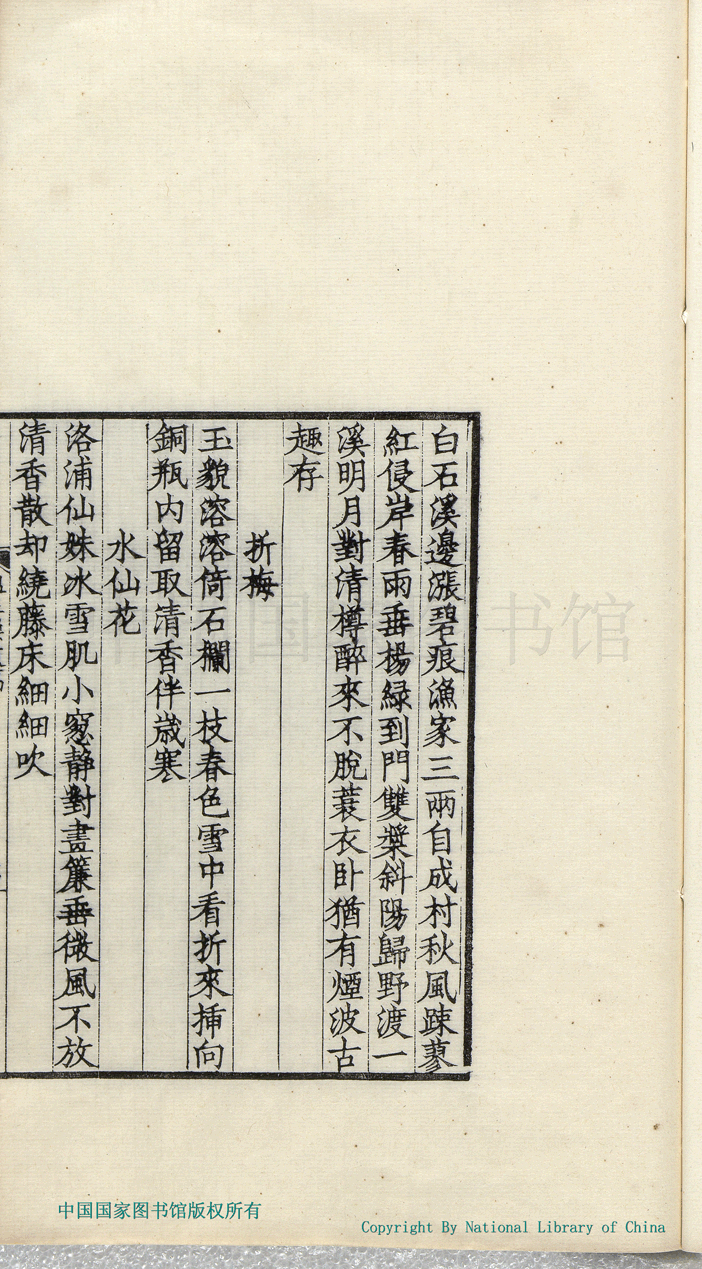 白石溪邊漲碧痕漁家三兩自成村秋風踈蓼
紅侵岸春雨垂楊綠到門雙槳斜陽歸野渡一
溪明月對清樽醉來不脫蓑衣卧猶有煙波古
趣存
折梅
玉貌溶溶倚石欄一枝春色雪中看折來揷向
銅瓶内留取清香伴歲寒
水仙花
洛浦仙姝冰雪肌小窓静對畫簾垂微風不放
清香散却繞藤床細細吹
中国国家图书馆版权所有
Copyright By National Library of China